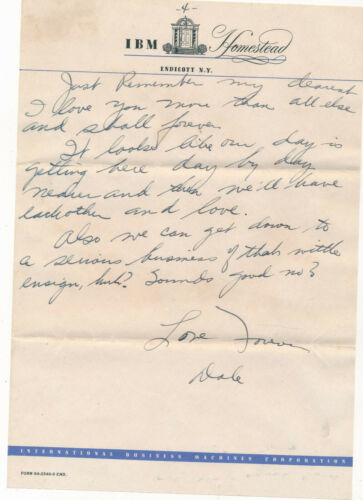 -4-
IBM Homestead
ENDICOTT N.Y.
Just Remember my dearest
I love you more than all else
and shall forever
It looks like our day is
getting here day by day
nearer and then we'll have
eachother and love.
Also we can get down to
a serious business of that little
ensign, huh? Sounds good no?
Love Forever
Dale
INTERNATIONAL BUSINESS MACHINES CORPORATION